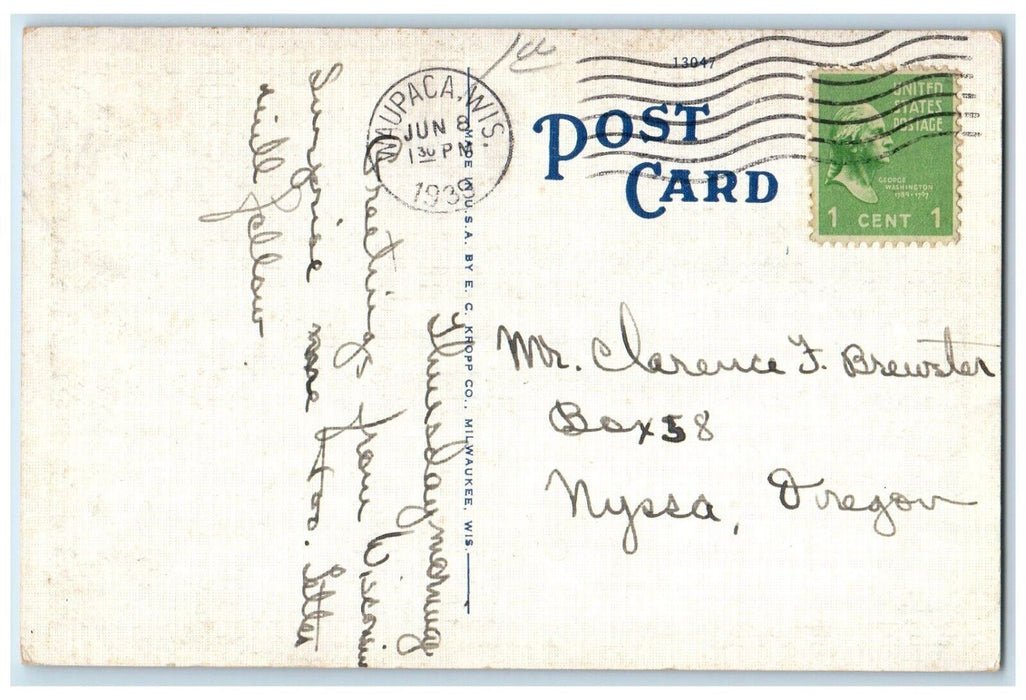 1¢
13047
WAUPACA, WIS.
JUN 8
1 30 PM
1939
POST
CARD
UNITED
STATES
POSTAGE
GEORGE
WASHINGTON
1789-1797
1 CENT 1
MADE IN U.S.A. BY E. C. KROPP CO., MILWAUKEE, WIS.
Thursday morning
Greetings from Wisconsin
Surprise me too. Letter
will follow
Mr. Clarence F. Brewster
Box 58
Nyssa, Oregon